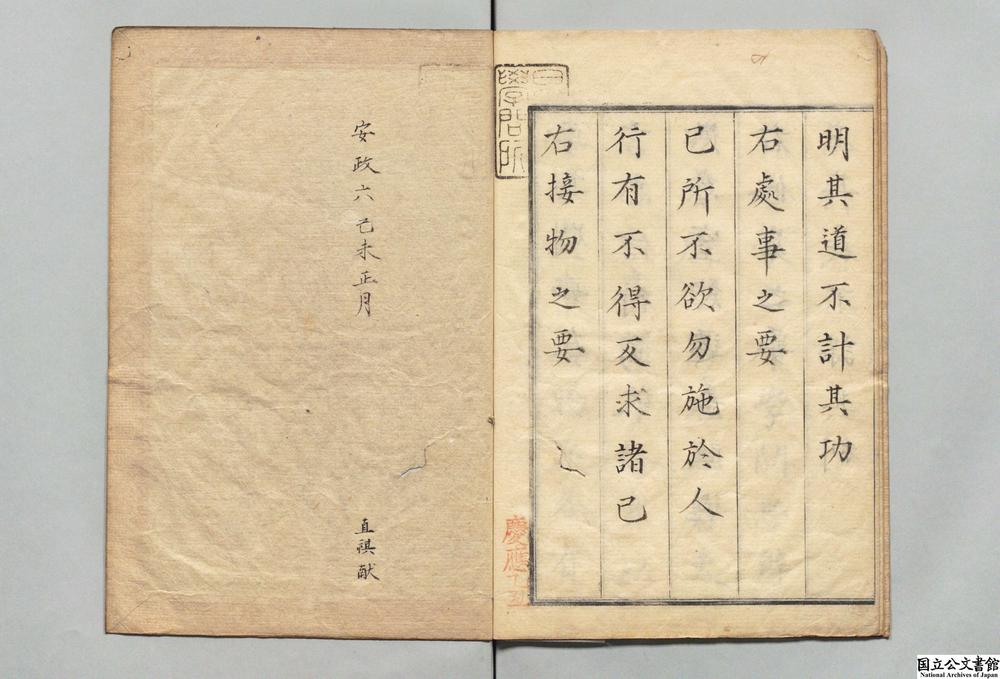 明其道不計其功
右處事之要
己所不欲勿施於人
行有不得反求諸己
右接物之要
慶應乙丑
安政六己未正月
直祺献
国立公文書館
National Archives of Japan